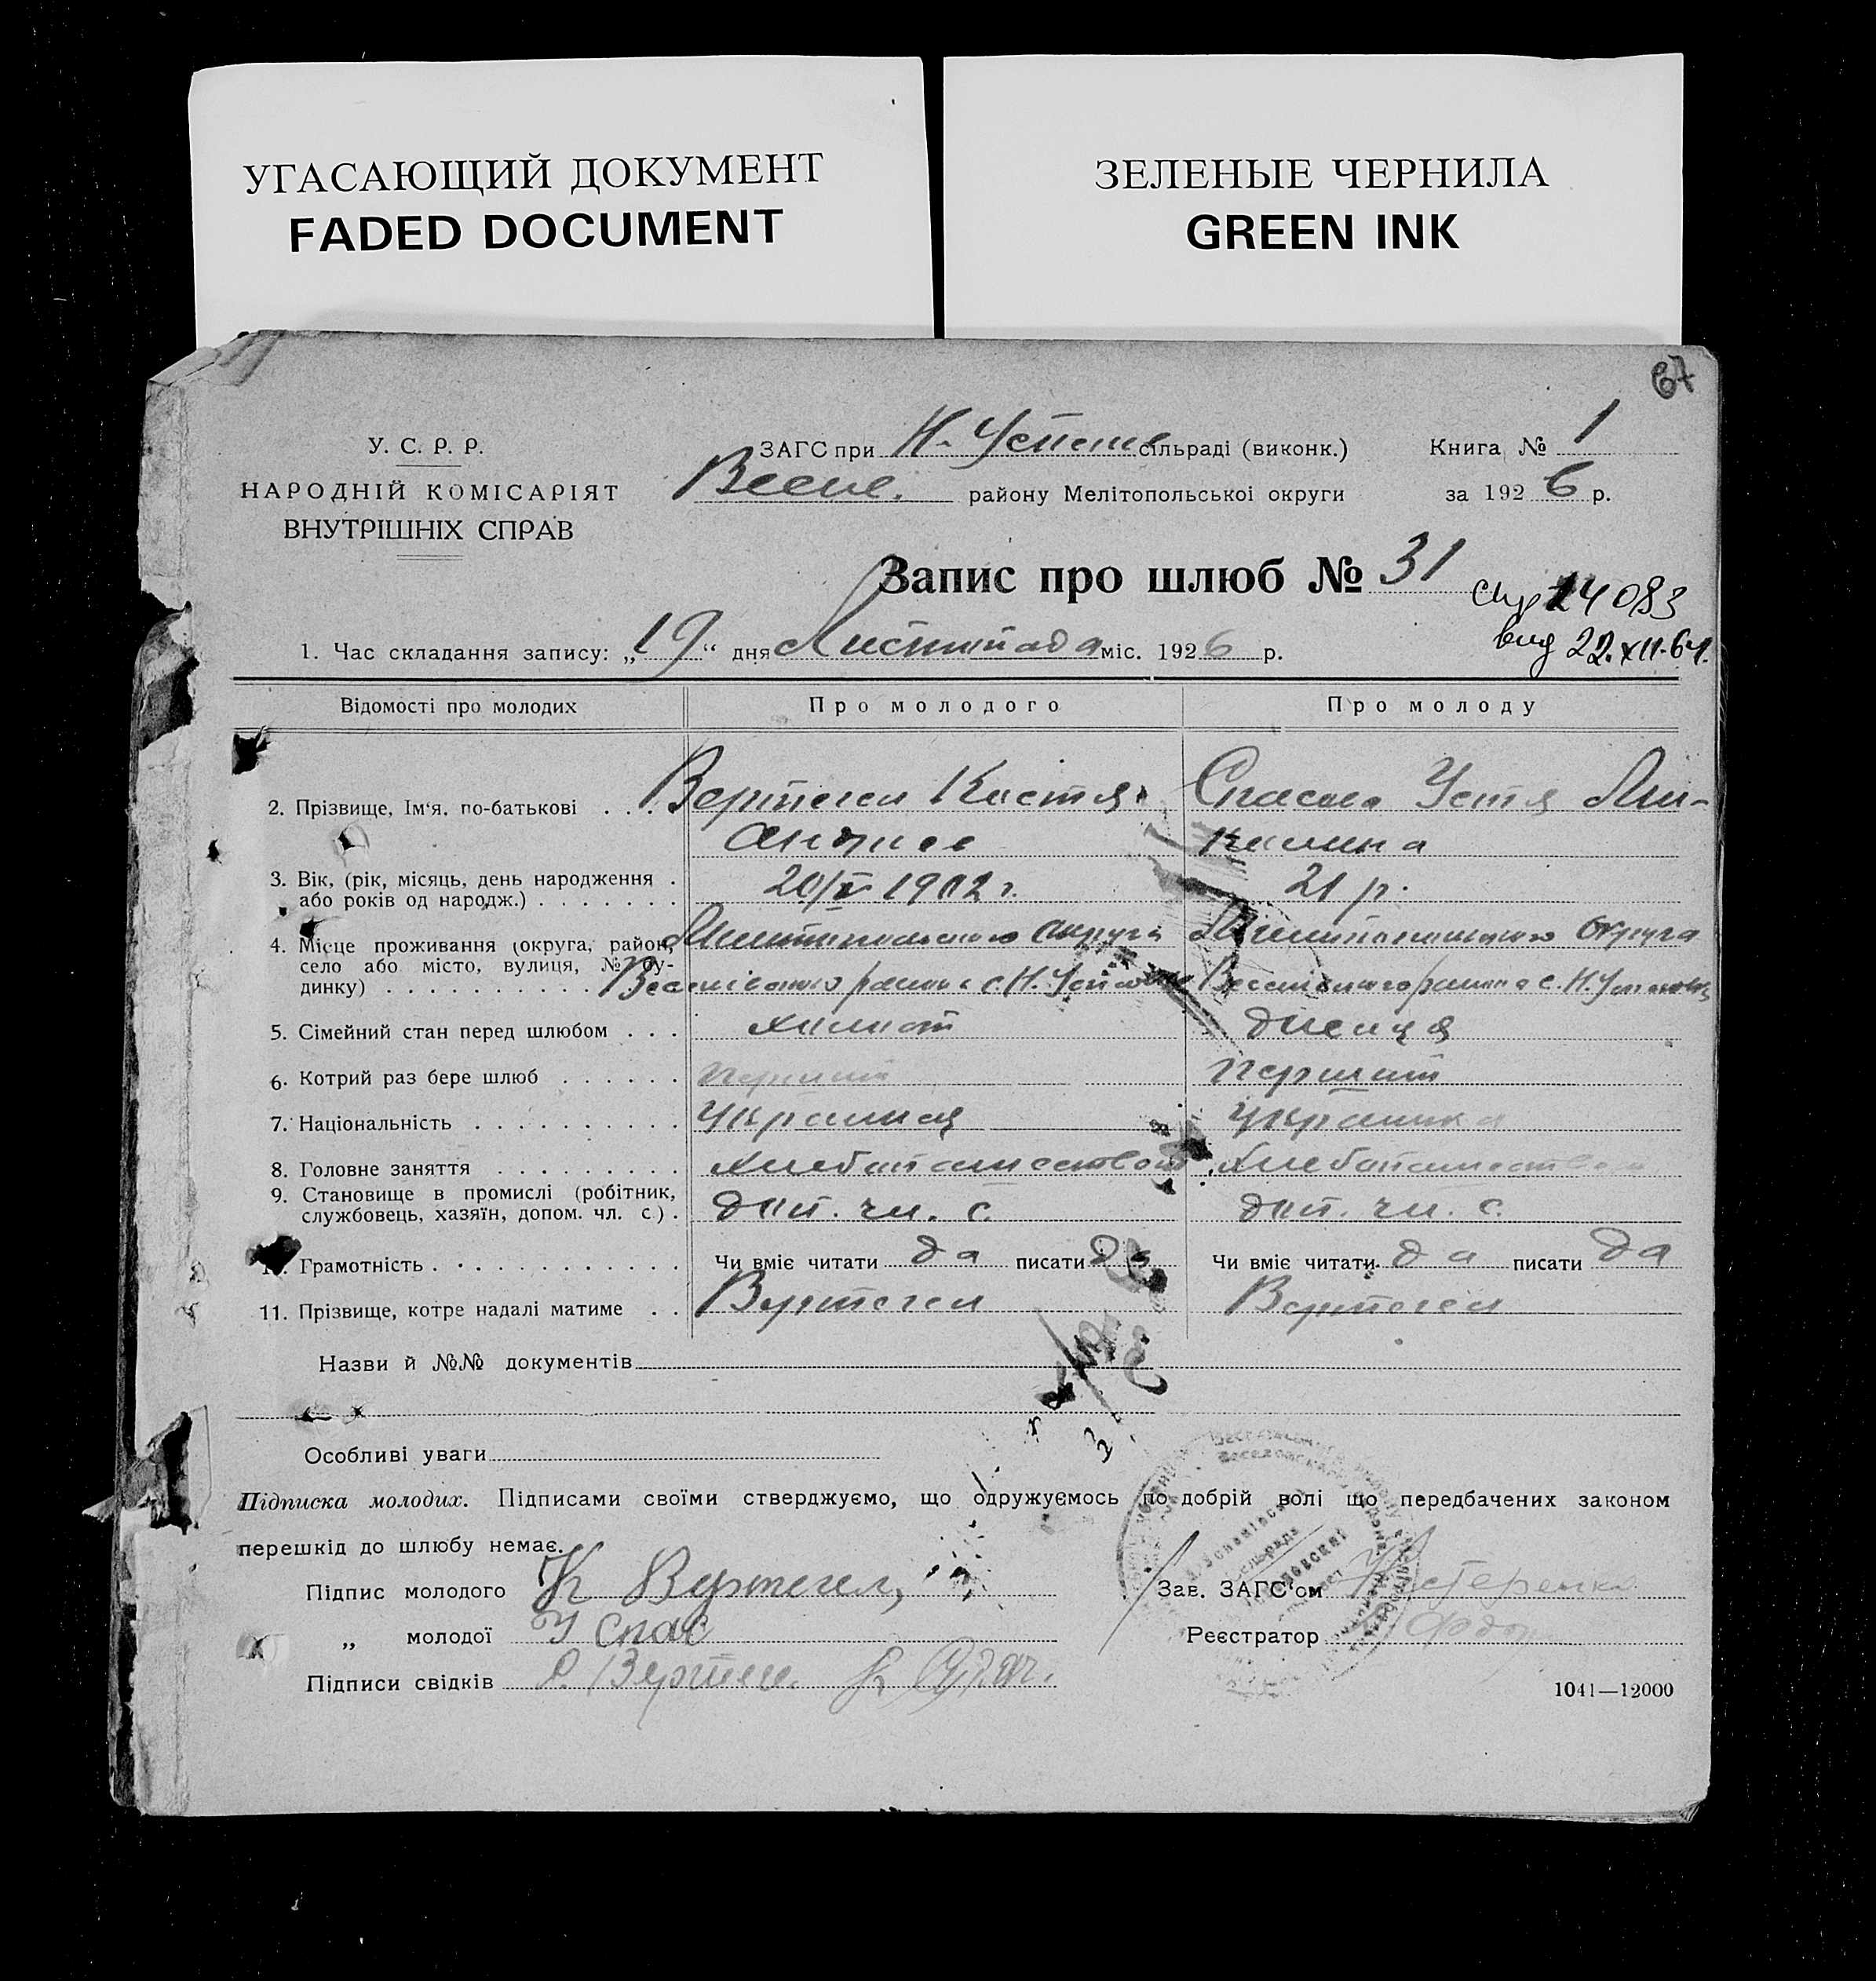 УГАСАЮЩИЙ ДОКУМЕНТ
FADED DOCUMENT
ЗЕЛЕНЫЕ ЧЕРНИЛА
GREEN INK
67
У. С. Р. Р.
НАРОДНІЙ КОМІСАРІЯТ
ВНУТРІШНІХ СПРАВ
ЗАГС при Н. Успен сільраді (виконк.)
Весел. району Мелітопольської округи
Книга № 1
за 1926 р.
Запис про шлюб № 31
24083
вид 22.XII.64.
1. Час складання запису: „19“ дня Листопада міс. 1926 р.
Відомості про молодих
Про молодого
Про молоду
2. Прізвище, Ім‘я, по-батькові . . .
Вертегел Костя
Андрее
Спасова Устя Яки-
мовна
3. Вік, (рік, місяць, день народження .
або років од народж.) . . . . . . .
20/V 1902 г.
21 р.
4. Місце проживання (округа, район,
село або місто, вулиця, № бу-
динку) . . . . . . . . . .
Мелитопольського округа
Веселівського района с. Н. Успеновка
Мелитопольського округа
Веселівського района с. Н. Успеновка
5. Сімейний стан перед шлюбом . . .
холост
дивиця
6. Котрий раз бере шлюб . . . . . .
перший
перший
7. Національність . . . . . . . . . .
Украинец
Украинка
8. Головне заняття . . . . . . . . .
хлебопашеством
хлебопашеством
9. Становище в промислі (робітник,
службовець, хазяїн, допом. чл. с.) .
доп. чл. с.
доп. чл. с.
Грамотність . . . . . . . . . . . .
Чи вміє читати да писати да
Чи вміє читати да писати да
11. Прізвище, котре надалі матиме . .
Вертегел
Вертегел
Назви й №№ документів
Особливі уваги
Підписка молодих. Підписами своїми стверджуємо, що одружуємось по добрій волі що передбачених законом
перешкід до шлюбу немає.
Підпис молодого К Вертегел
„ молодої У Спас
Підписи свідків
Зав. ЗАГС‘ом Нестеренко
Реєстратор
1041—12000